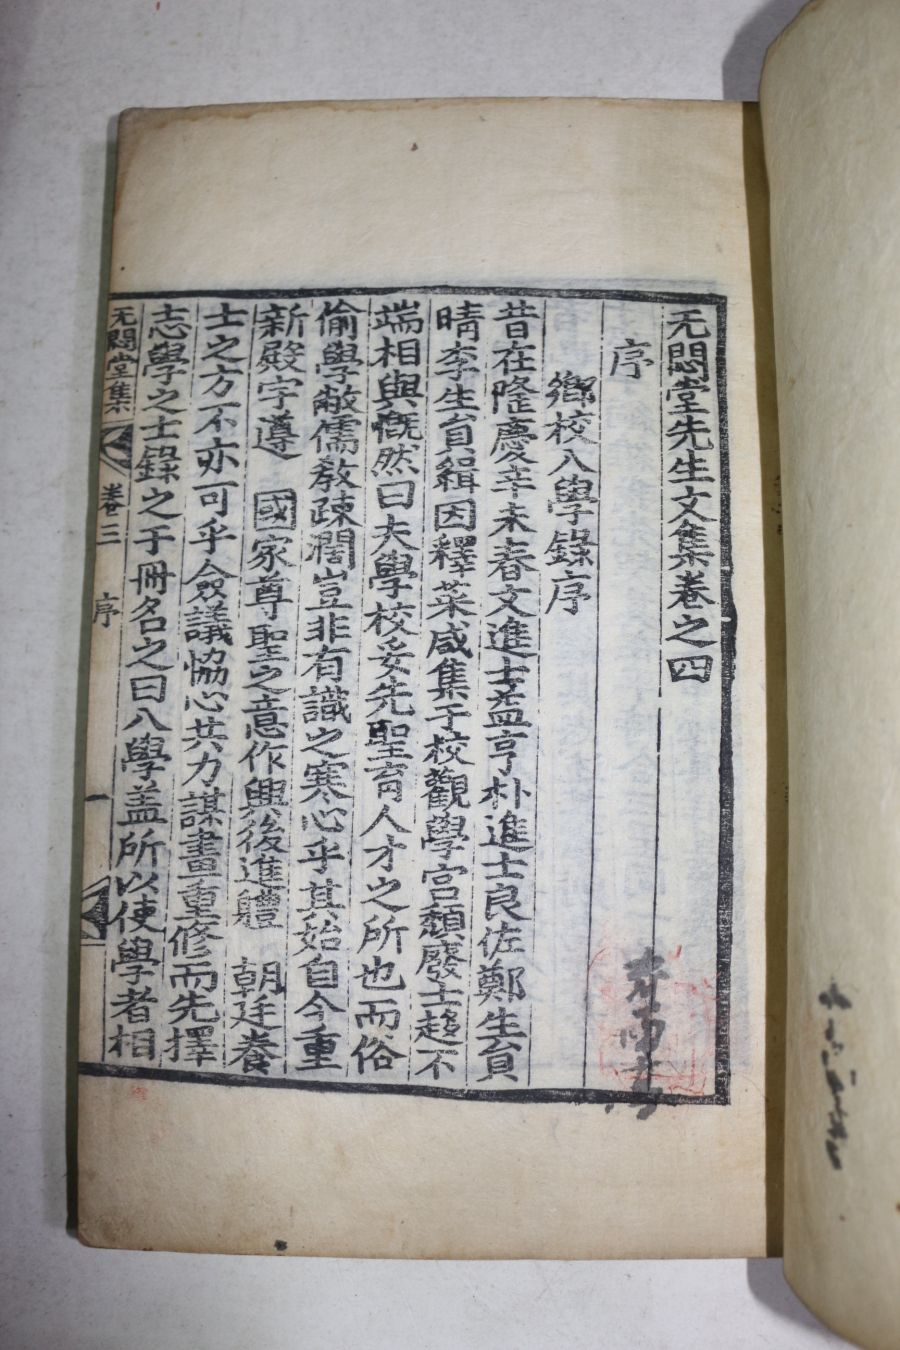 无悶堂先生文集卷之四
序
鄉校入學錄序
昔在隆慶辛未春文進士益亨朴進士良佐鄭生員
晴李生員緝因釋菜咸集于校觀學宮頹廢士趍不
端相與慨然曰夫學校妥先聖育人才之所也而俗
偷學敝儒敎疎濶豈非有識之寒心乎其始自今重
新殿宇遵 國家尊聖之意作興後進軆 朝廷養
士之方不亦可乎僉議協心共力謀畫重修而先擇
志學之士錄之于冊名之曰入學盖所以使學者相
无悶堂集 卷三 序 一